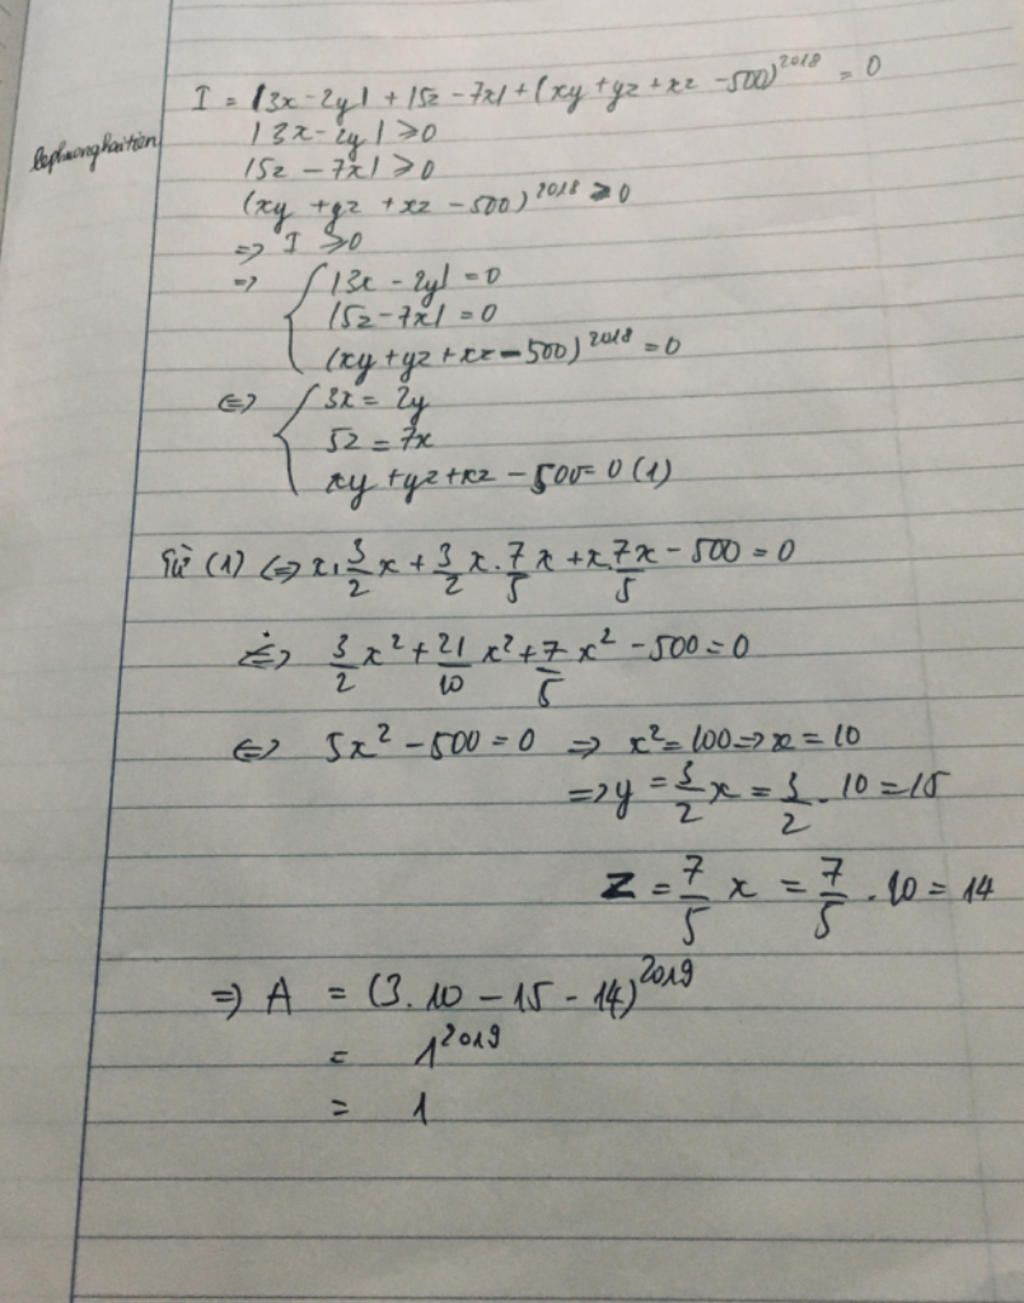 I = |3x - 2y| + |5z - 7x| + (xy + yz + xz - 500)^2018 = 0
lephuonghaitien
|3x - 2y| ⩾ 0
|5z - 7x| ⩾ 0
(xy + yz + xz - 500)^2018 ⩾ 0
=> I ⩾ 0
=> { |3x - 2y| = 0
|5z - 7x| = 0
(xy + yz + xz - 500)^2018 = 0
<=> { 3x = 2y
5z = 7x
xy + yz + xz - 500 = 0 (1)
Từ (1) <=> x. 3/2 x + 3/2 x . 7/5 x + x. 7x/5 - 500 = 0
<=> 3/2 x² + 21/10 x² + 7/5 x² - 500 = 0
<=> 5x² - 500 = 0 => x² = 100 => x = 10
=> y = 3/2 x = 3/2 . 10 = 15
Z = 7/5 x = 7/5 . 10 = 14
=> A = (3. 10 - 15 - 14)^2019
= 1^2019
= 1